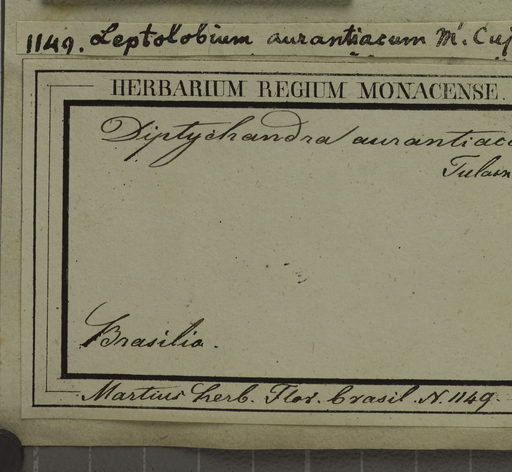 1149. Leptolobium aurantiacum M. Cuj
HERBARIUM REGIUM MONACENSE.
Diptychandra aurantiac
Tulasn
Brasilia.
Martius herb. Flor. brasil. N. 1149.